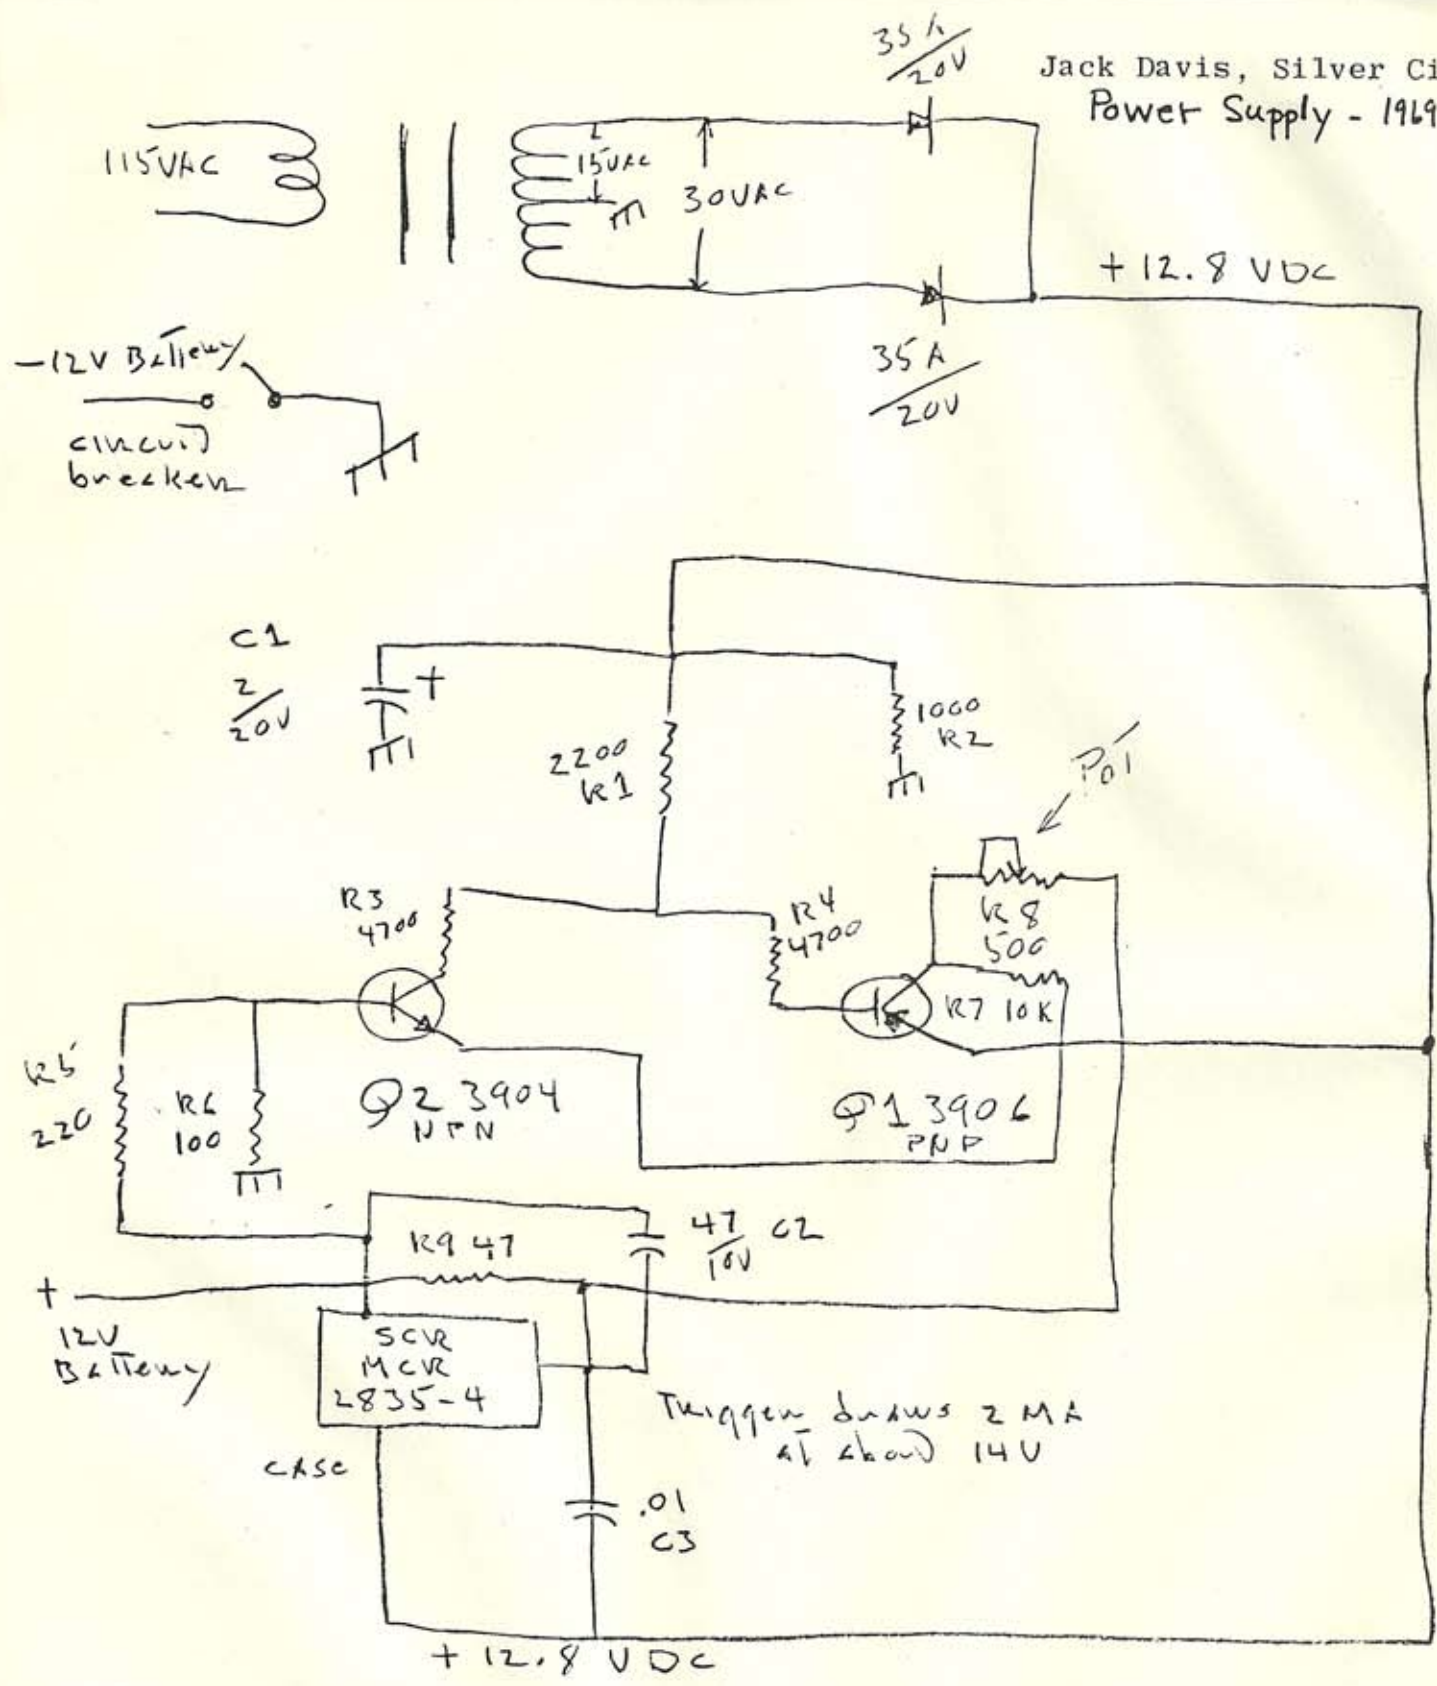 35A/20V
Jack Davis, Silver Ci
Power Supply - 1969
115VAC
15VAC
30VAC
+12.8 VDC
35A/20V
-12V Battery
circuit
breaker
C1
2/20V
+
2200
R1
1000
R2
Pot
R3
4700
R4
4700
R8
500
R7 10K
R5
220
R6
100
Q2 3904
NPN
Q1 3906
PNP
R9 47
47/10V C2
+
12V
Battery
SCR
MCR
2835-4
Trigger draws 2 MA
at about 14V
CASE
.01
C3
+12.8 VDC